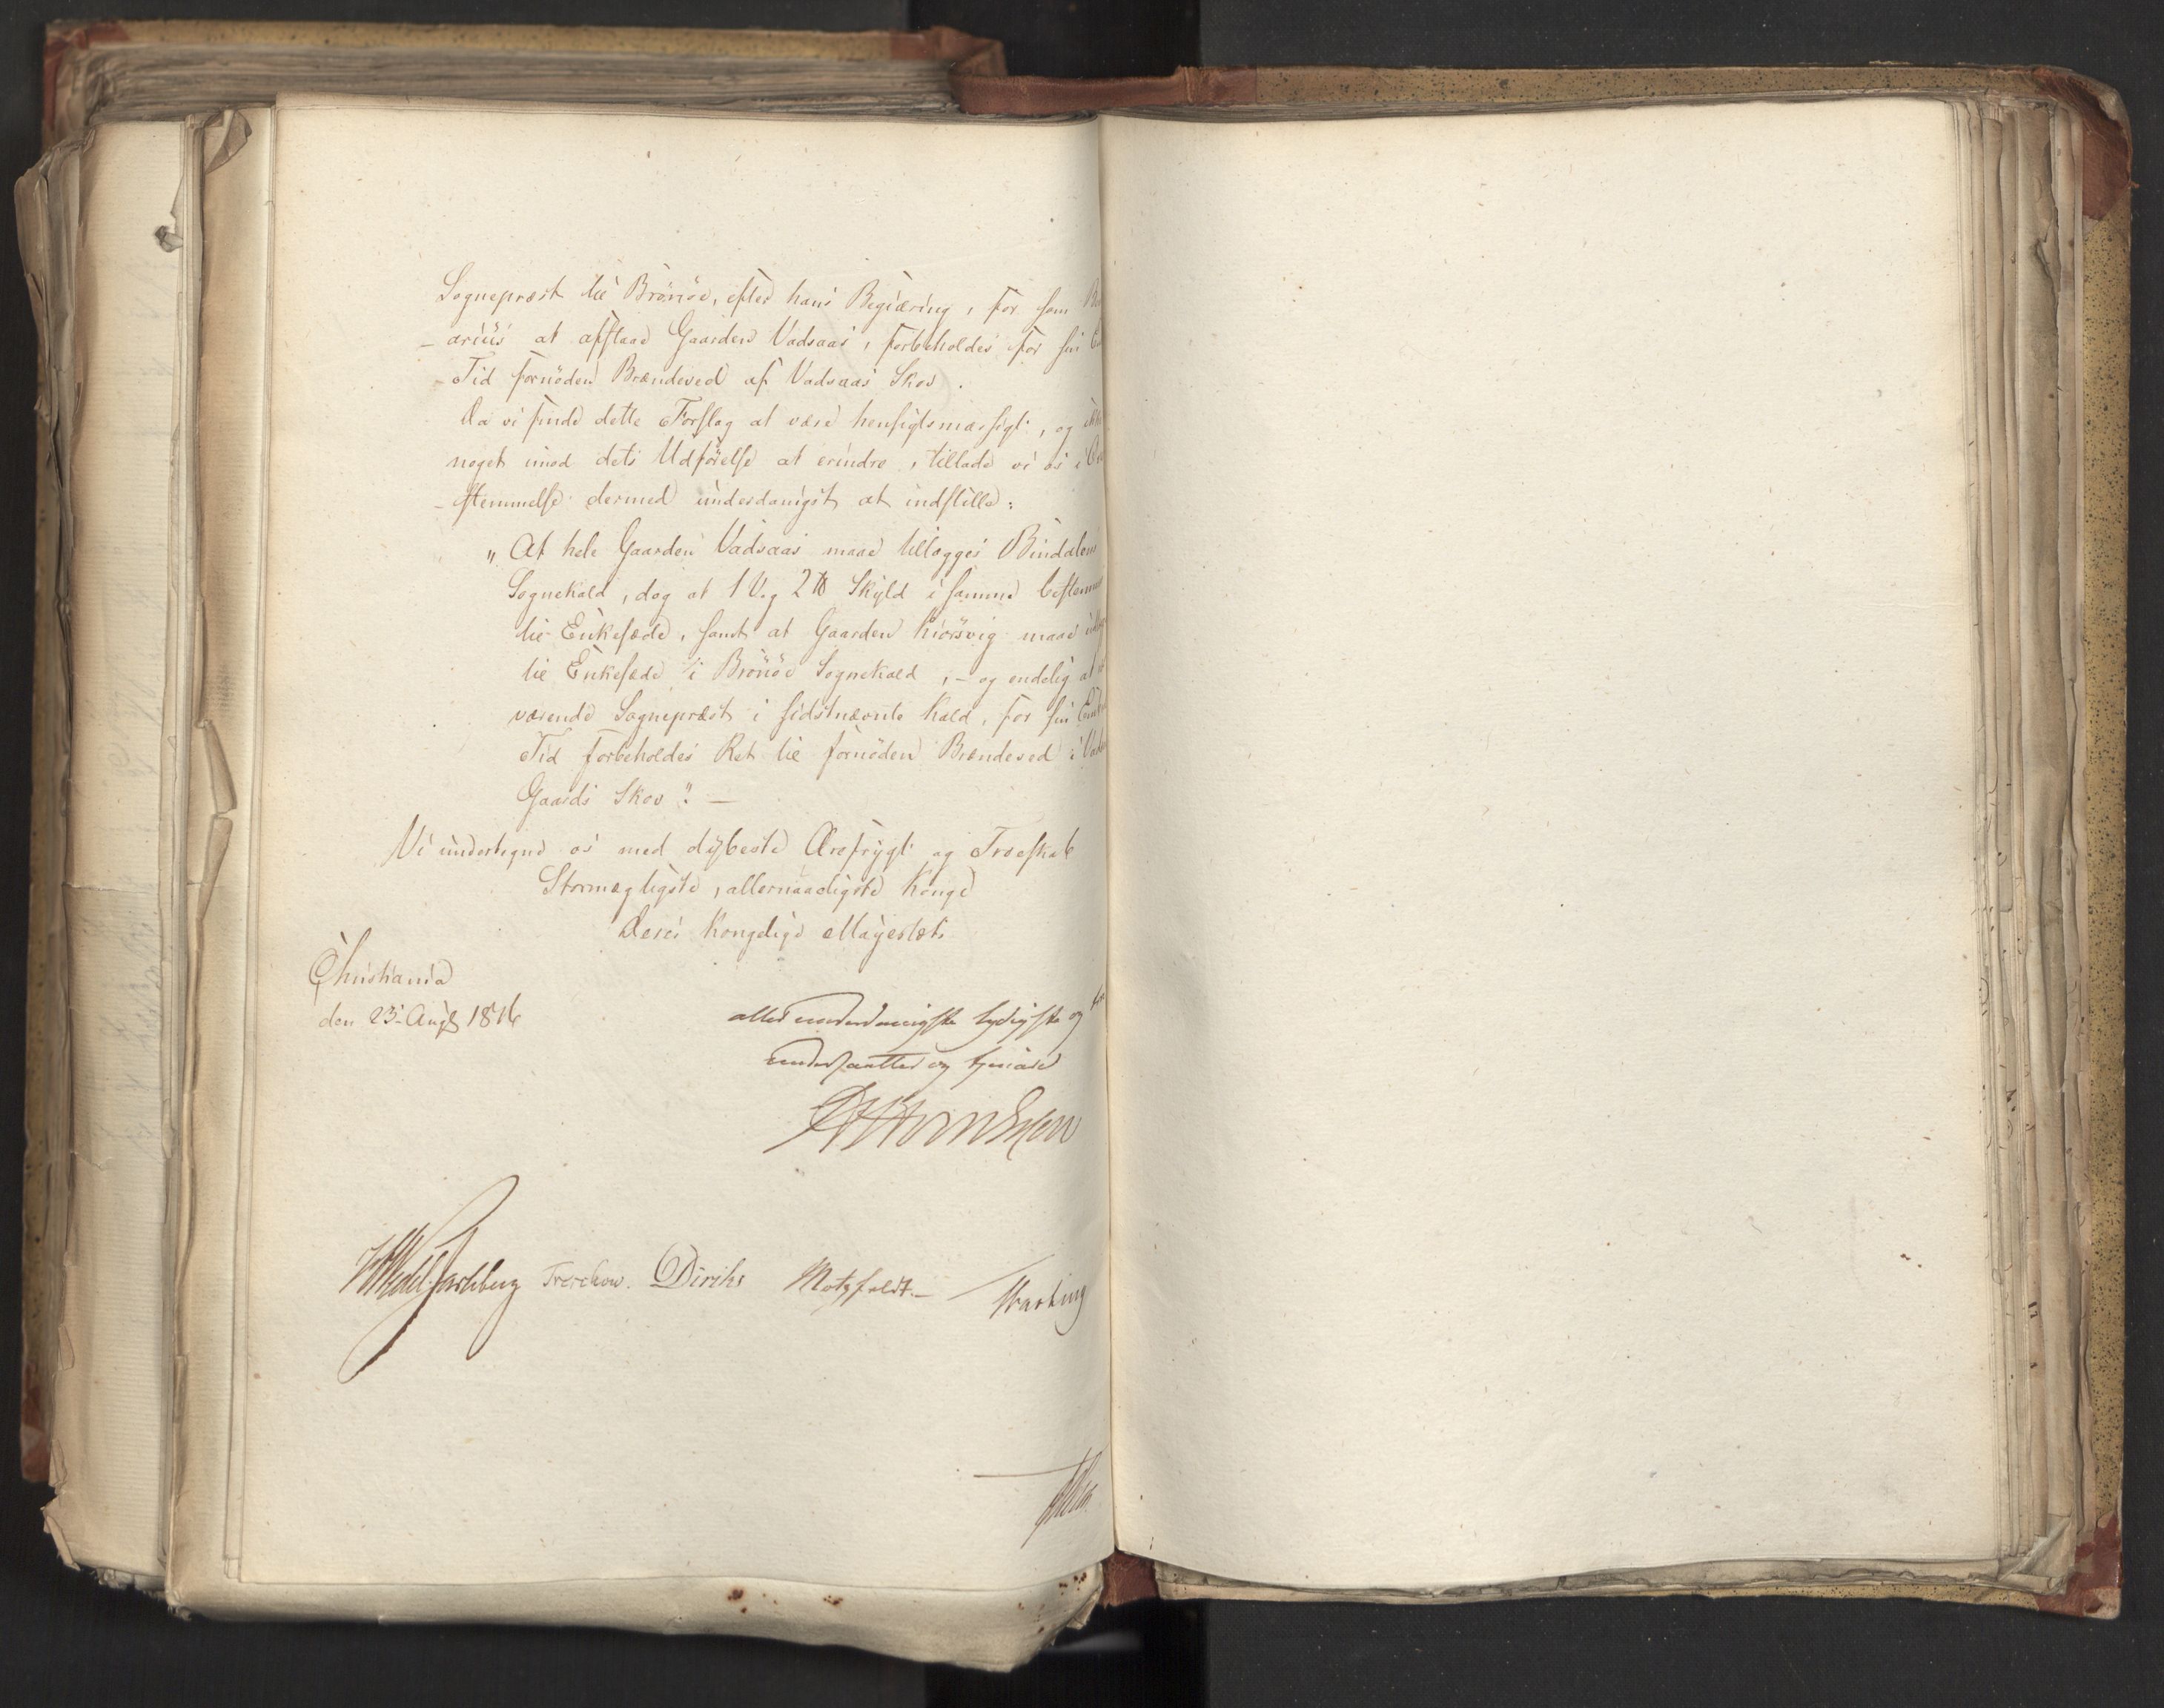 Sognepræst til Brönöe, efter hans Begiæring, for som
-ariüs at afstaae Gaarden Vadsaas, forbeholdes for sin
-Tid fornöden Brændeved af Vadsaas Skov.
Da vi finde dette Forslag at være hensigtsmæssigt, og
noget imod dets Udförelse at erindre, tillade vi os i
-stemmelse dermed underdanigst at indstille:
"At hele Gaarden Vadsaas maae tillægges Bindalens
Sognekald, dog at 1 Vog 2 ℔ Skyld i samme bestemmes
til Enkesæde, samt at Gaarden Kiørsvig maae
til Enkesæde i Brönöe Sognekald, - og endelig at
værende Sognepræst i sidstnævnte Kald, for sin
Tid forbeholdes Ret til fornöden Brændeved i
Gaards Skov". —
Vi undertegne os med dybeste Ærefrygt og Troeskab
Stormægtigste, allernaadigste Konge
Deres Kongelige Majestæts
Christiania
den 23 Augt 1816
allerunderdanigste lydigste og
undersaatter og tjenere
Wedel Jarlsberg Treschow. Diriks Motzfeldt.—